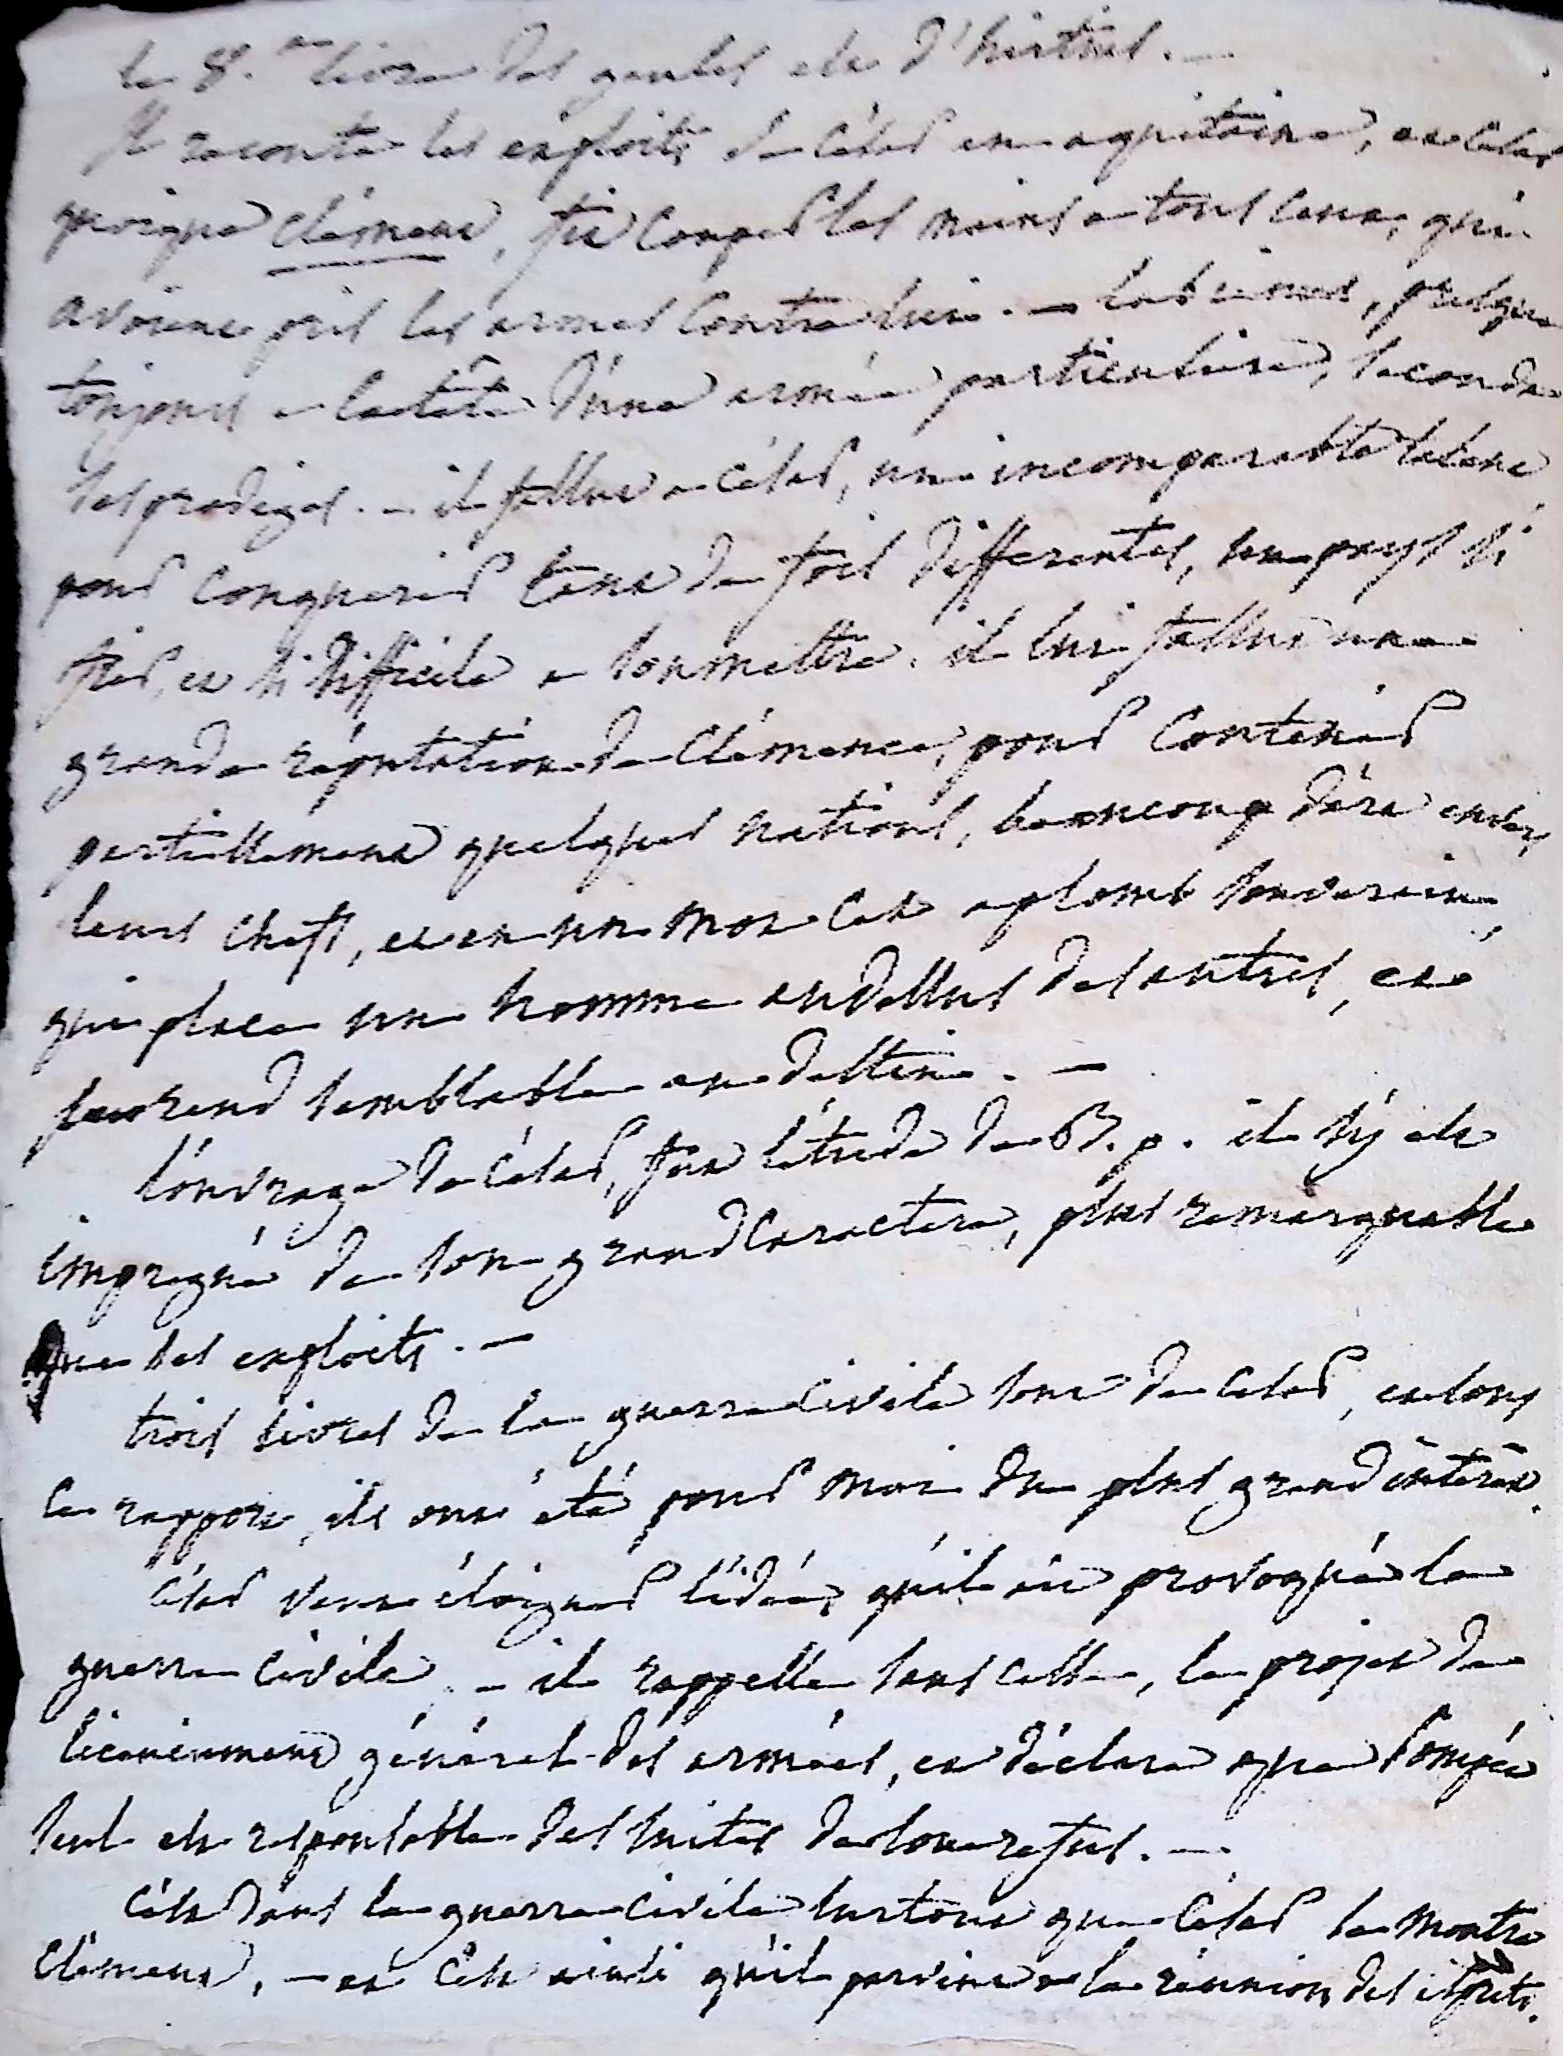 le 8.me livre des gaules est d'hirtius. —
Il raconte les exploits de César en aquitaine, et César
quoique clément, fit couper les mains a tous ceux, qui
avoient pris les armes contre lui. — Labienus, presque
toujours a la tête d'une armée particuliere, seconda
ses prodiges. — il fallut a César, un incomparable talent
pour conquerir tant de fois differentes, un pays si
fier, et si difficile a soumettre. il lui fallut une
grande réputation de clémence, pour contenir
partiellement quelques nations, beaucoup d'art envers
leurs chefs, et en un mot cet aplomb souverain,
qui place un homme audessus des autres, et
le rend semblable au destin. —
l'ouvrage de César, fut l'étude de B. p. il s'y est
impregné de son grand caractere, plus remarquable
que ses exploits. —
trois livres de la guerre civile sont de César, et sous
ce rapport, ils ont été pour moi du plus grand intérêt.
César veut éloigner l'idée, qu'il ait provoqué la
guerre civile. — il rappelle sans cesse, le projet de
licenciement général des armées, et déclare que Pompée
seul est responsable des suites de son refus. —
C'est dans la guerre civile surtout que César se montre
clément, — et c'est ainsi qu'il parvint a la réunion des esprits.